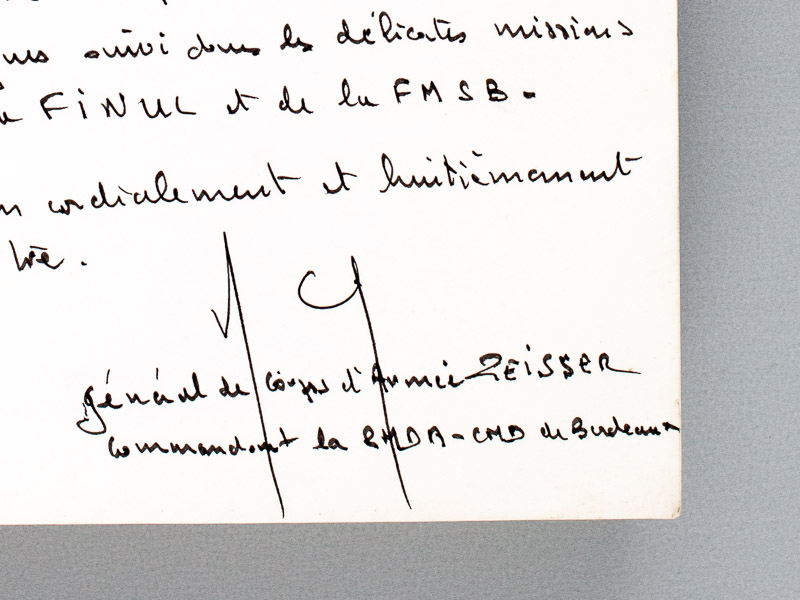 suivi dans les délicates missions
FINUL et de la FMSB.
cordialement et huitièmement
général de Corps d'Armée ZEISSER
Commandant la RMDA-CMD de Bordeaux